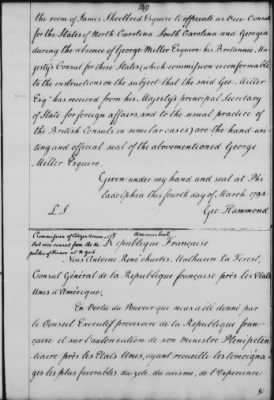 149
the room of James Shoolbred Esquire to officiate as Vice Consul
for the States of North Carolina South Carolina and Georgia
during the absence of George Miller Esquire his Britannic Ma-
jesty's Consul for those States, which commission is conformable
to the instructions on the subject that the said Geo. Miller
Esqr. has received from his Majesty's principal Secretary
of State for foreign affairs, and to the usual practice of
the British Consuls in similar cases) are the hand wri-
ting and official seal of the abovementioned George
Miller Esquire.
Given under my hand and seal at Phi-
ladelphia this fourth day of March 1794
L.S Geo Hammond
Commission of
République Française
Nous Antoine René Charles Mathurin La Forest,
Consul Général de la Republique française près les Etats
Unis d'Amérique;
En Vertu du Pouvoir que nous a été donné par
le Conseil Executif provisoire de la Republique fran-
caise et sur l'autorisation de son ministre Plénipoten-
tiaire près les Etats Unis, ayant recueille les temoigna-
ges les plus favorables du zéle, du civisme, de l'experience